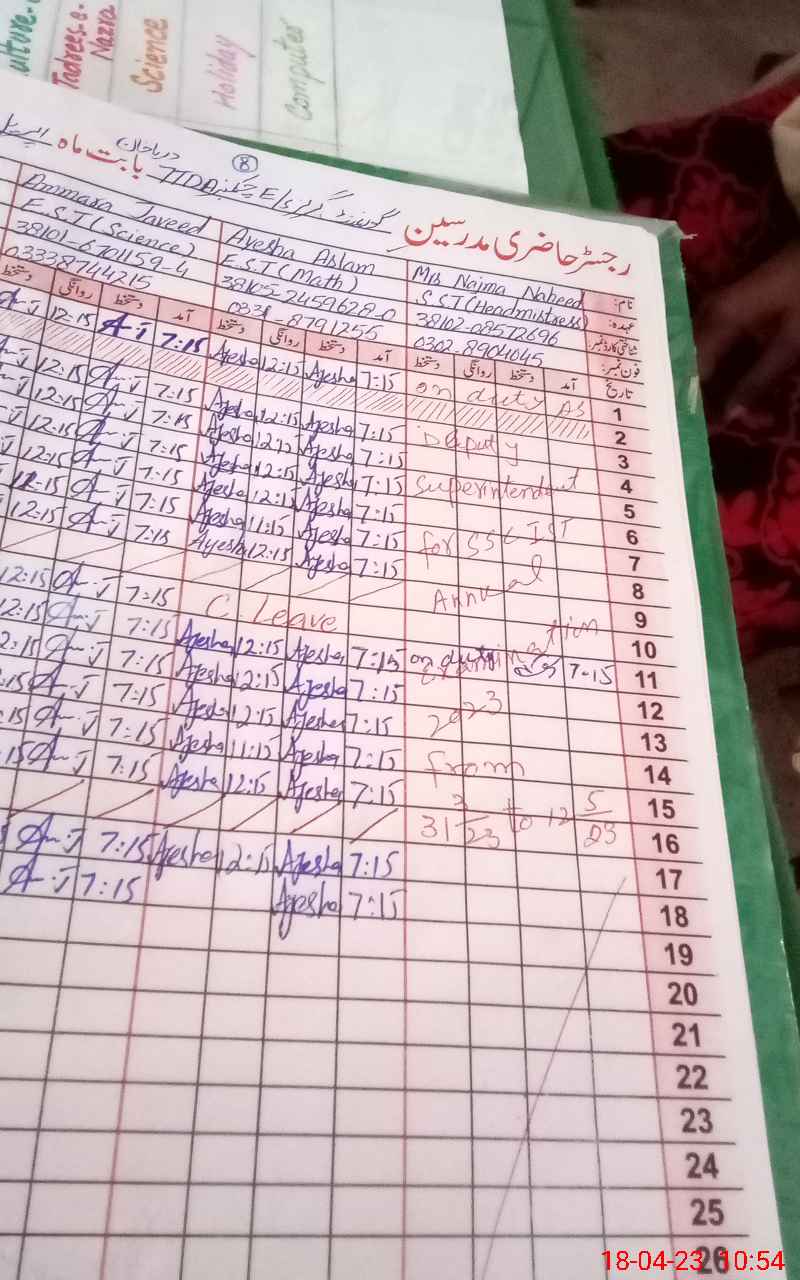 Tadrees-e-Nazra
Science
Holiday
Computer
8
رجسٹر حاضری مدرسین گورنمنٹ گرلز E/S TDA بابت ماہ اپریل
نام: Mrs Najma Naheed Ayesha Aslam Ammara Javeed
عہدہ: S.S.T (Headmistress) E.S.T (Math) E.S.T (Science)
شناختی کارڈ نمبر: 38102-08572696 38105-2459628-0 38101-6701159-4
فون نمبر: 0302-8904045 0331-8791255 03338744215
تاریخ آمد دستخط روانگی دستخط آمد دستخط روانگی دستخط آمد دستخط روانگی دستخط
1 on duty AS 7:15 Ayesha 12:15 Ayesha 7:15 A-J 12:15 A-J
2
3 Deputy 7:15 Ayesha 12:15 Ayesha 7:15 A-J 12:15
4 7:15 Ayesha 12:15 Ayesha 7:15 A-J 12:15
5 Superintendent 7:15 Ayesha 12:15 Ayesha 7:15 A-J 12:15
6 7:15 Ayesha 12:15 Ayesha 7:15 A-J 12:15
7 for SSC IST 7:15 Ayesha 11:15 Ayesha 7:15 A-J 12:15
8 7:15 Ayesha 12:15 Ayesha 7:15 A-J 12:15
9 Annual
10 C. Leave 7:15 A-J 12:15
11 7-15 on duty examination 7:15 Ayesha 12:15 Ayesha 7:15 A-J 12:15
12 7:15 Ayesha 12:15 Ayesha 7:15 A-J 12:15
13 2023 7:15 Ayesha 12:15 Ayesha 7:15 A-J
14 7:15 Ayesha 11:15 Ayesha 7:15 A-J
15 from 7:15 Ayesha 12:15 Ayesha 7:15 A-J
16 31 3/23 to 12 5/23
17 7:15 Ayesha 12:15 Ayesha 7:15 A-J
18 7:15 Ayesha 7:15 A-J
19
20
21
22
23
24
25
26
18-04-23 10:54